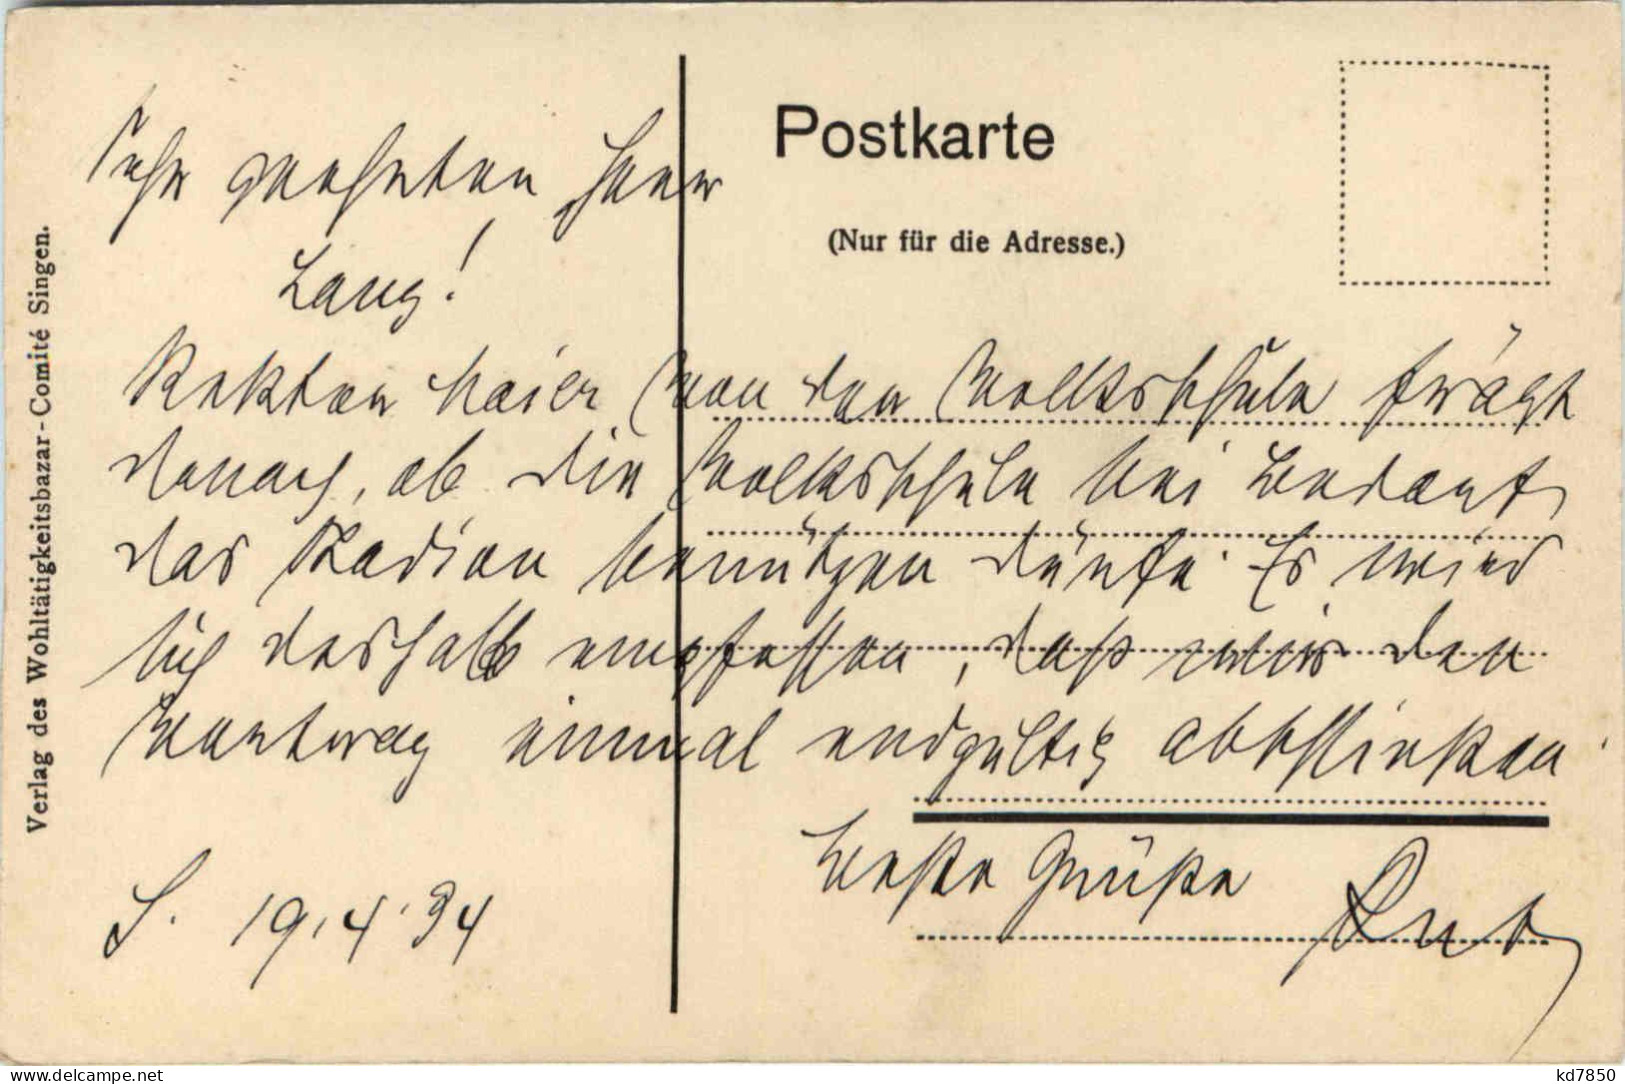 Sehr geehrter Herr
Lang!
Rektor Maier von der Volksschule frägt
danach, ob die Volksschule bei Bedarf
das Stadion benützen dürfe. Es wird
sich deshalb empfehlen, daß wir den
Vertrag einmal endgültig abschließen.
Beste Grüße
S. 19.4.34
Postkarte
(Nur für die Adresse.)
Verlag des Wohltätigkeitsbazar-Comité Singen.
delcampe.net
kd7850